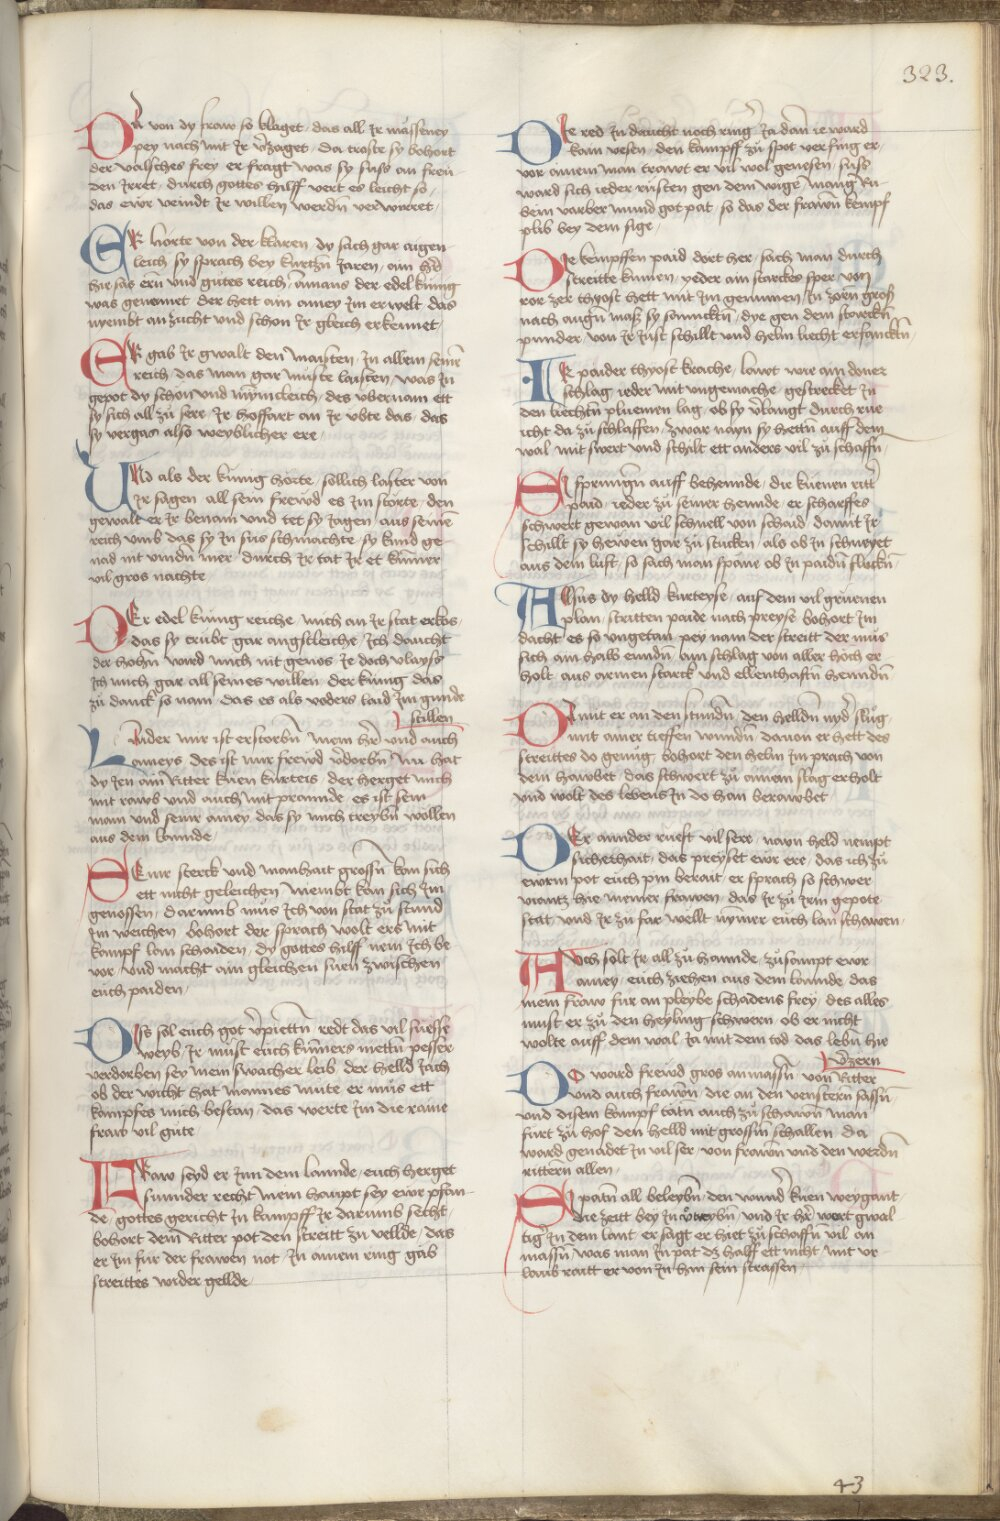 323.
Da von dy fraw so klaget das all Ir masseney
pey nach mit Ir v̄zaget da troste sy bohort
der valsches frey er fragt was sy suss an freu
den Irret durch gottes hilff vert es leicht so
das ewr veindt Ir willen werdn̄ verworret
ER horte von der klaren dy sach gar augen
leich sy sprach bey kurtzn̄ Jaren ain h̄r
hie sas ern̄ und gutes reich amans der edel kunig
was genennet der hett ain amey Im erwelt das
nyembt an zucht und schon Ir gleich erkennet
ER gab Ir gwalt den maisten In allem seinē
reich das man gar muste laisten was In
gepot dy schon und mynicleich des vbernam ett
sy sich all zu sere Ir hoffart an Ir vbte das das
sy vergas also weyblicher ere
UNd als der kunig horte sollich laster von
Ir sagen all sein frewd es Im storte den
gewalt er Ir benam und tet sy Jagen aus seinē
reich umb das sy In sus schmachte sy kund ge
nad nit vindn̄ mer durch Ir tat Ir et kumer
vil gros nachte
DEr edel kunig reiche mich an Ir stat erkos
das sy erube gar angstleiche Ich daucht
der hohn̄ wird mich nit genos Ie doch vlayss
Ich mich gar all seines willen der kunig das
zu danck so nam das es als voders laid Im gunde
stillen
LAider mir ist erstorbn̄ mein h̄r und auch
amneys des ist mir frewd v̄dorbn̄ Nu hat
dy Jen ain Ritter kuen kurteis der herget mich
mit rawb und auch mit prannde es ist sein
mam und seinr amey das sy mich treybn̄ wollen
aus dem lannde
SEinr sterck und manhait grossn̄ kan sich
ett nicht geleichen niembt kan sich Im
genossen darumb mus Ich von stat zu stund
Im weichen bohort der sprach wolt ers mit
kampf lan schaiden dy gottes hilff nem Ich be
vor und macht ain gleichen suen zwischen
euch paiden
Dis sol euch got v̄pietn̄ redt das vil suesse
weyb Ir must euch kumers mettn̄ pesser
verdorben sey mein swacher leib der helld Jach
ob der wicht hat mannes mute er mus ett
kampfes mich bestan das werte Im die raine
fraw vil gute
FRaw seyd er Inn dem lannde euch herget
sunnder recht mein haupt sey ewr pfan
de gottes gericht In kampff Ir darumb secht
bohort dem Ritter pot den streitt zu vellde das
er Im fur der frawen not In ainem ring gab
streittes wider gellde
DIe red In daucht noch ring Ja dan̄ ie ward
kain vesen den kampff zu spot verfing er
vor ainem man trawt er vil wol genesen suss
ward sich ieder rusten gen dem wige mang Ru
bein varber mund got pat so das der frawn̄ kempf
plib bey dem sige
DIe kempffen paid dort her sach man durch
streitte kumen yeder ain starckes sper von
ror zer thyost hett mit Im genumen In zorn gross
nach augn̄ mass sy sanncktn̄ dye gen dem starckn̄
punder von Ir Just schillt und helm liecht erfanncktn̄
IR paider thyost krache lawt wie ain doner
schlag ieder mit ungemache gestrecket In
den liechtn̄ pluemen lag ob sy v̄langt durch rue
icht da zu schlaffen zwar nayn sy hettn̄ auff dem
wal mit swert und schilt ett anders vil zu schaffn̄
SI sprungn̄ auff behennde die kuenen ritt̄
paid ieder zu seiner hennde er scharffes
schwert gewan vil schnell von schaid damit Ir
schillt sy hewen gar zu stucken als ob In schneyet
aus dem lufft so sach man spane ob In paidn̄ fluckn̄
ALlsus dy helld kurteyse auf dem vil gruenen
plan stritten paide nach preyse bohort Im
dacht es so ungetan pey nam der streitt der mus
sich ain halb enndn̄ ain schlag von aller hoch er
holt aus armen starck und ellenthaftn̄ henndn̄
DAmit er an den stundn̄ den helldn̄ nyd̄ slug
mit ainer tieffen wundn̄ davon er hett des
streittes do genug bohort den helm Im prach von
dem hawbet das schwert zu ainem slag er holt
und wolt des lebens In do han berawbet
DEr annder rueft vil sere nayn held nempt
sicherhait das preyset ewr ere das ich zu
ewrm pot euch pin berait er sprach so schwer
viantz hie meiner frawen das Ir zu Irm gepote
stat und Ir zu far wellt nymer euch lan schawen
AUch solt Ir all zu hannde zusampt ewr
amey euch ziehen aus dem lannde das
mein fraw fur an pleybe schadens frey des alles
must er zu den heyling schwern ob er nicht
wolte auff dem wal Ja mit dem tod das lebn̄ hie
v̄zern
DO ward frewd gros an massn̄ von Ritter
und auch frawn̄ die an den vensteren sassn̄
und disem kampf tatn̄ auch zu schawn̄ man
furt zu hof den helld mit grossm̄ schallen da
ward genadet In vil ser von frawn̄ und den werdn̄
rittern allen
SI patn̄ all beleybn̄ den wund̄ kuen weygant
die zeitt bey In v̄treybn̄ und Ir h̄r wert gwal
tig In dem lant er sagt er hiet zu schaffn̄ vil an
massn̄ was man In pat dz halff ett nicht mit ur
laub raitt er von In hin sein strassen
43